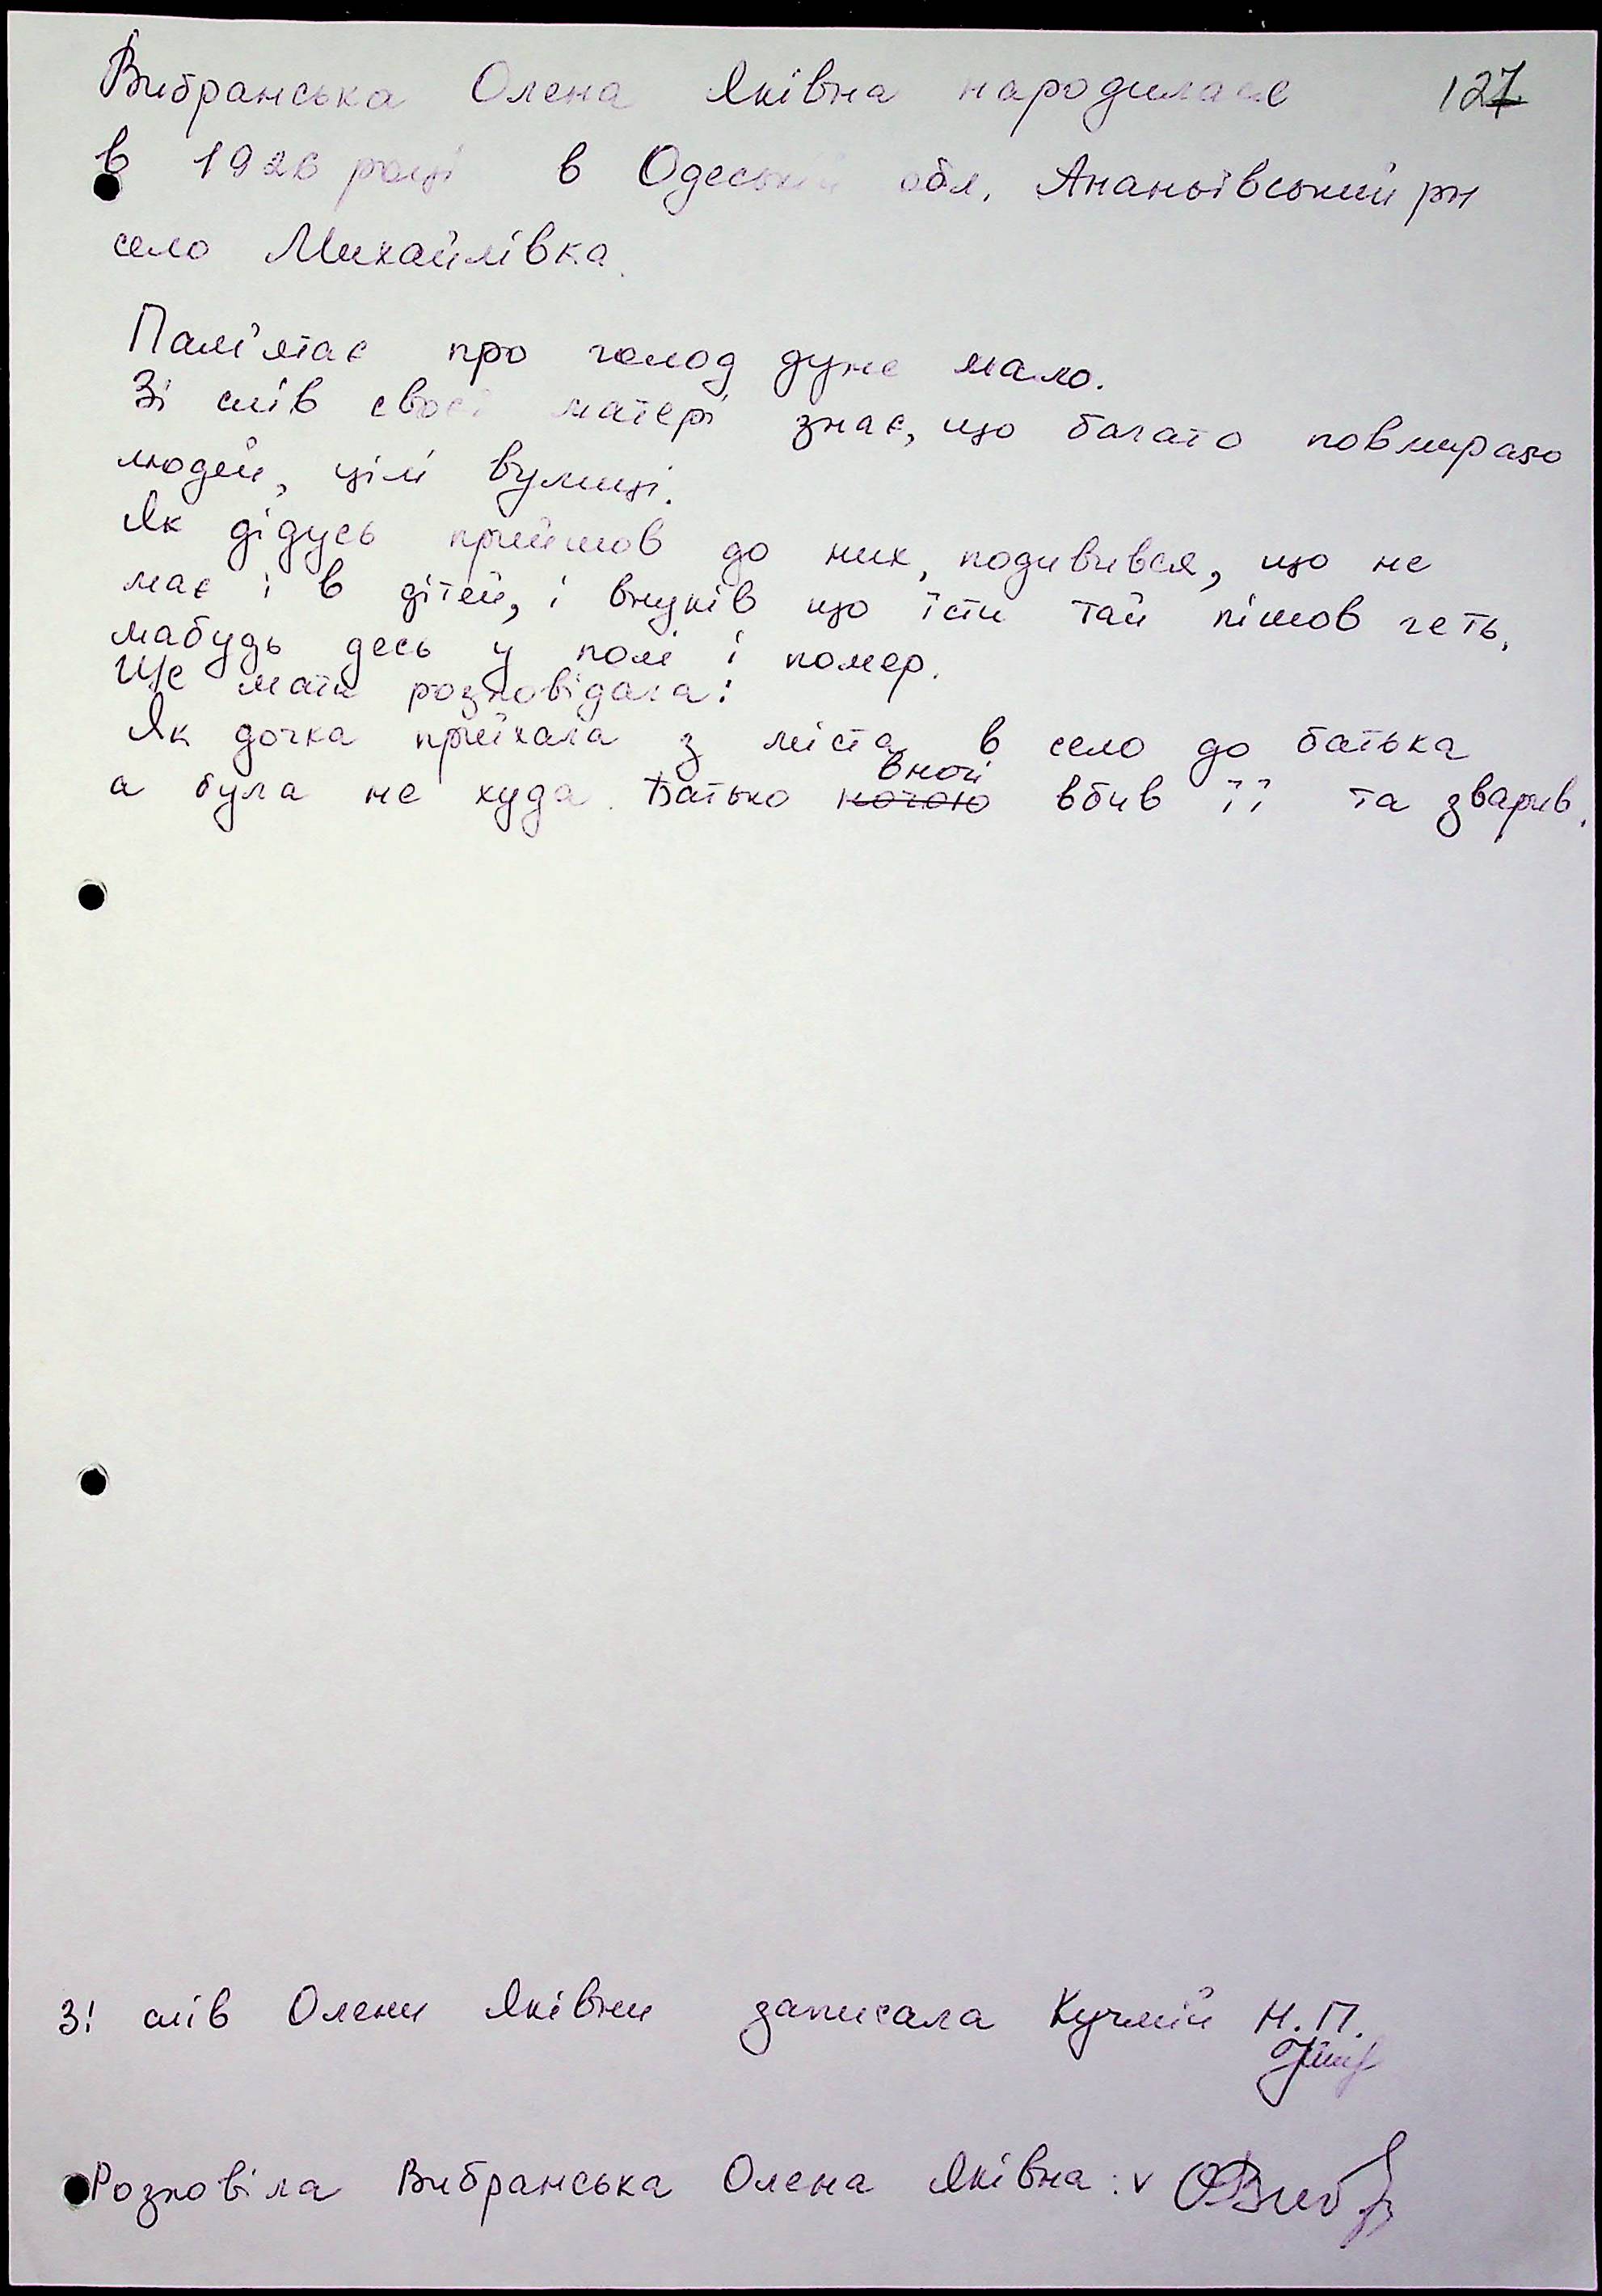 Вибранська Олена Яківна народилась 127
в 1926 році в Одеській обл. Ананьївський рн
село Михайлівка.
Пам'ятає про голод дуже мало.
Зі слів своєї матері знає, що багато повмирало
людей, цілі вулиці.
Як дідусь прийшов до них, подивився, що не
має і в дітей, і внуків що їсти тай пішов геть,
мабудь десь у полі і помер.
Ще мати розповідала:
Як дочка приїхала з міста в село до батька
вночі
а була не худа. Батько ночою вбив її та зварив.
Зі слів Олени Яківни записала Кучмій Н.П.
Розповіла Вибранська Олена Яківна: v ОВибр